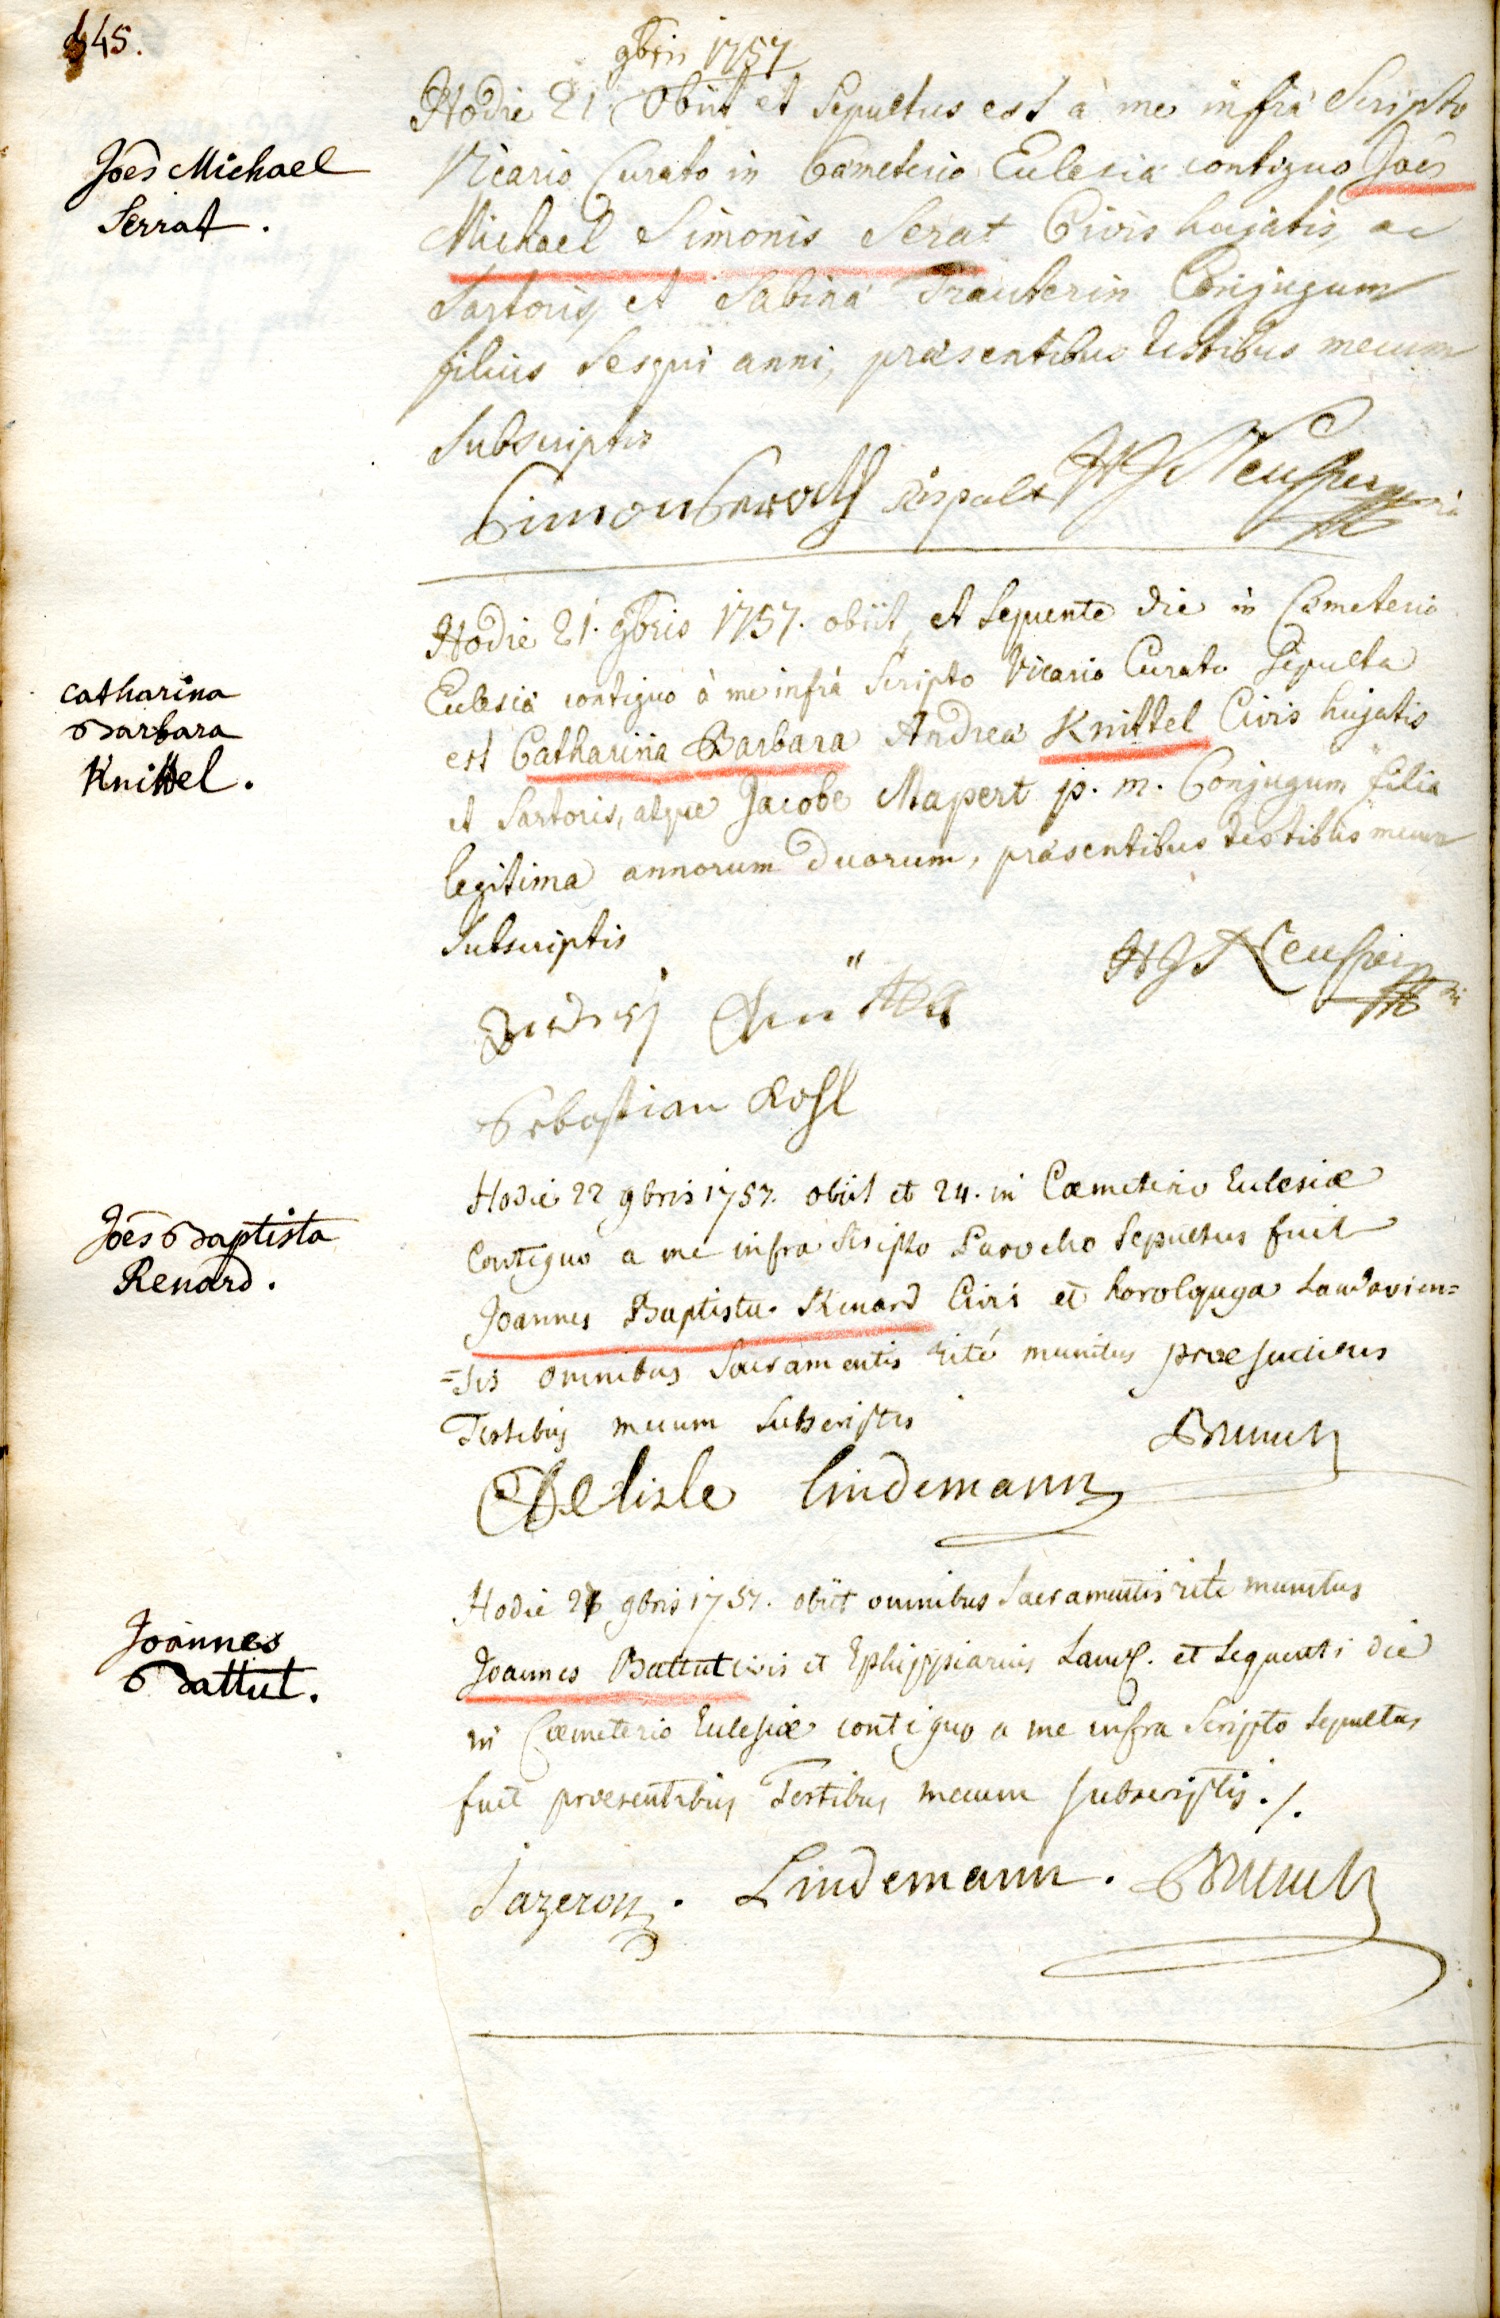 445.
9bris 1757
Hodie 21. Obiit et Sepultus est à me infrà Scripto
Joês Michael
Serrat.
Vicario Curato in Cæmeterio Eulesiæ contiguo Joês
Michael Simonis Serat Civis hujatis, ac
Sartoris, et Sabinæ Trauterin Conjugum
filius Sesqui anni, præsentibus testibus mecum
Subscriptis
Hodie 21. 9bris 1757. obiit, et Sequente die in Cœmeterio
Eulesiæ contiguo à me infrà Scripto Vicario Curato Sepulta
Catharina
Barbara
Knittel.
est Catharina Barbara Andreæ Knittel Civis hujatis
et Sartoris, atque Jacobe Mapert p. m. Conjugum filia
legitima annorum Duorum, præsentibus testibus mecum
Subscriptis
Sebastian Kohl
Hodie 22 9bris 1757. obiit et 24. in Cæmeterio Eulesiæ
Joês Baptista
Renard.
Contiguo a me infra Scripto Parocho Sepultus fuit
Joannes Baptista Renard Civis et horolguga Landavien=
=sis omnibus Sacramentis rité munitus
Testibus mecum Subscriptis
Delisle Lindemann
Hodie 9bris 1757. obiit omnibus Sacramentis rite munitus
Joannes
Battut.
Joannes Battut civis et Ephippiarius et Sequenti die
in Cæmeterio Eulesiæ contiguo a me infra Scripto Sepultus
fuit præsentibus Testibus mecum subscriptis ./.
Jazeron. Lindemann.